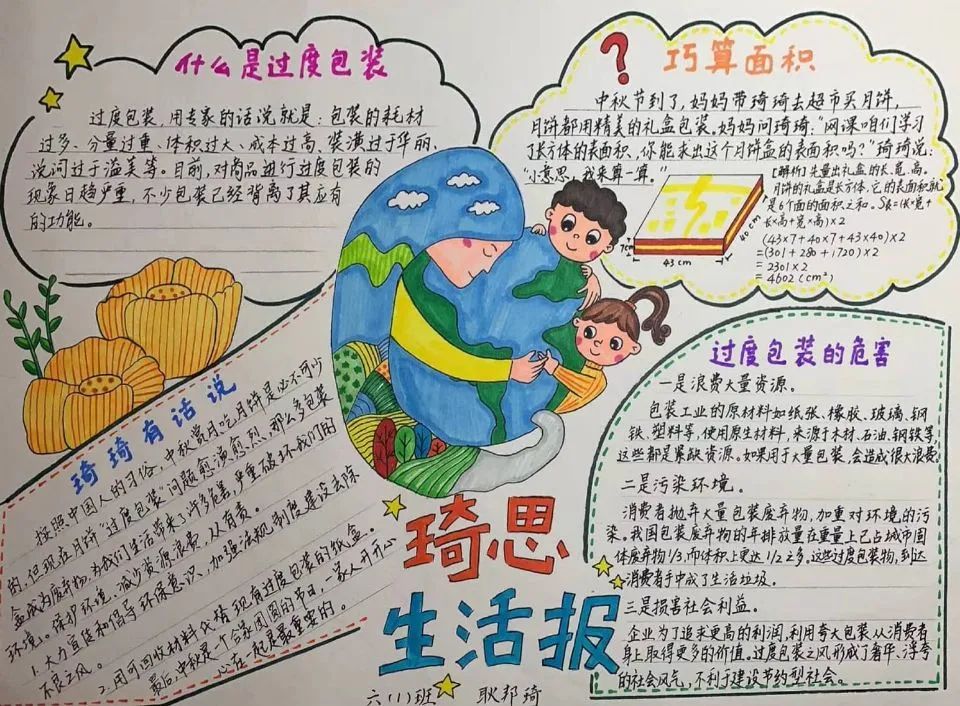 什么是过度包装
过度包装,用专家的话说就是:包装的耗材
过多、分量过重、体积过大、成本过高、装潢过于华丽、
说词过于溢美等。目前,对商品进行过度包装的
现象日趋严重,不少包装已经背离了其应有
的功能。
?
巧算面积
中秋节到了,妈妈带琦琦去超市买月饼,
月饼都用精美的礼盒包装,妈妈问琦琦:“网课咱们学习
了长方体的表面积,你能求出这个月饼盒的表面积吗?”琦琦说:
“小意思,我来算一算。”
【解析】先量出礼盒的长、宽、高。
月饼的礼盒是长方体,它的表面积就
是6个面的面积之和。S长=(长×宽+
长×高+宽×高)×2
(43×7+40×7+43×40)×2
=(301+280+1720)×2
=2301×2
=4602(cm²)
7cm
43cm
40cm
琦琦有话说
按照中国人的习俗,中秋赏月吃月饼是必不可少
的,但现在月饼“过度包装”问题愈演愈烈,那么多包装
盒成为废弃物,为我们生活带来了许多危害,严重破坏我们的
环境。保护环境,减少资源浪费,从有责。
1.大力宣传和倡导环保意识,加强法规制度建设去除
不良之风。
2.用可回收材料代替现有过度包装的纸盒。
最后,中秋是一个合家团圆的节日,一家人开开心
心在一起是最重要的。
过度包装的危害
一是浪费大量资源。
包装工业的原材料如纸张、橡胶、玻璃、钢
铁、塑料等,使用原生材料,来源于木材、石油、钢铁等,
这些都是紧缺资源。如果用于大量包装,会造成很大浪费
二是污染环境。
消费者抛弃大量包装废弃物,加重对环境的污
染。我国包装废弃物的年排放量在重量上已占城市固
体废弃物1/3,而体积上更达1/2之多。这些过度包装物,到达
消费者手中成了生活垃圾。
三是损害社会利益。
企业为了追求更高的利润,利用夸大包装,从消费者
身上取得更多的价值。过度包装之风形成了奢华、浮夸
的社会风气,不利于建设节约型社会。
琦思
生活报
六(1)班 耿邦琦